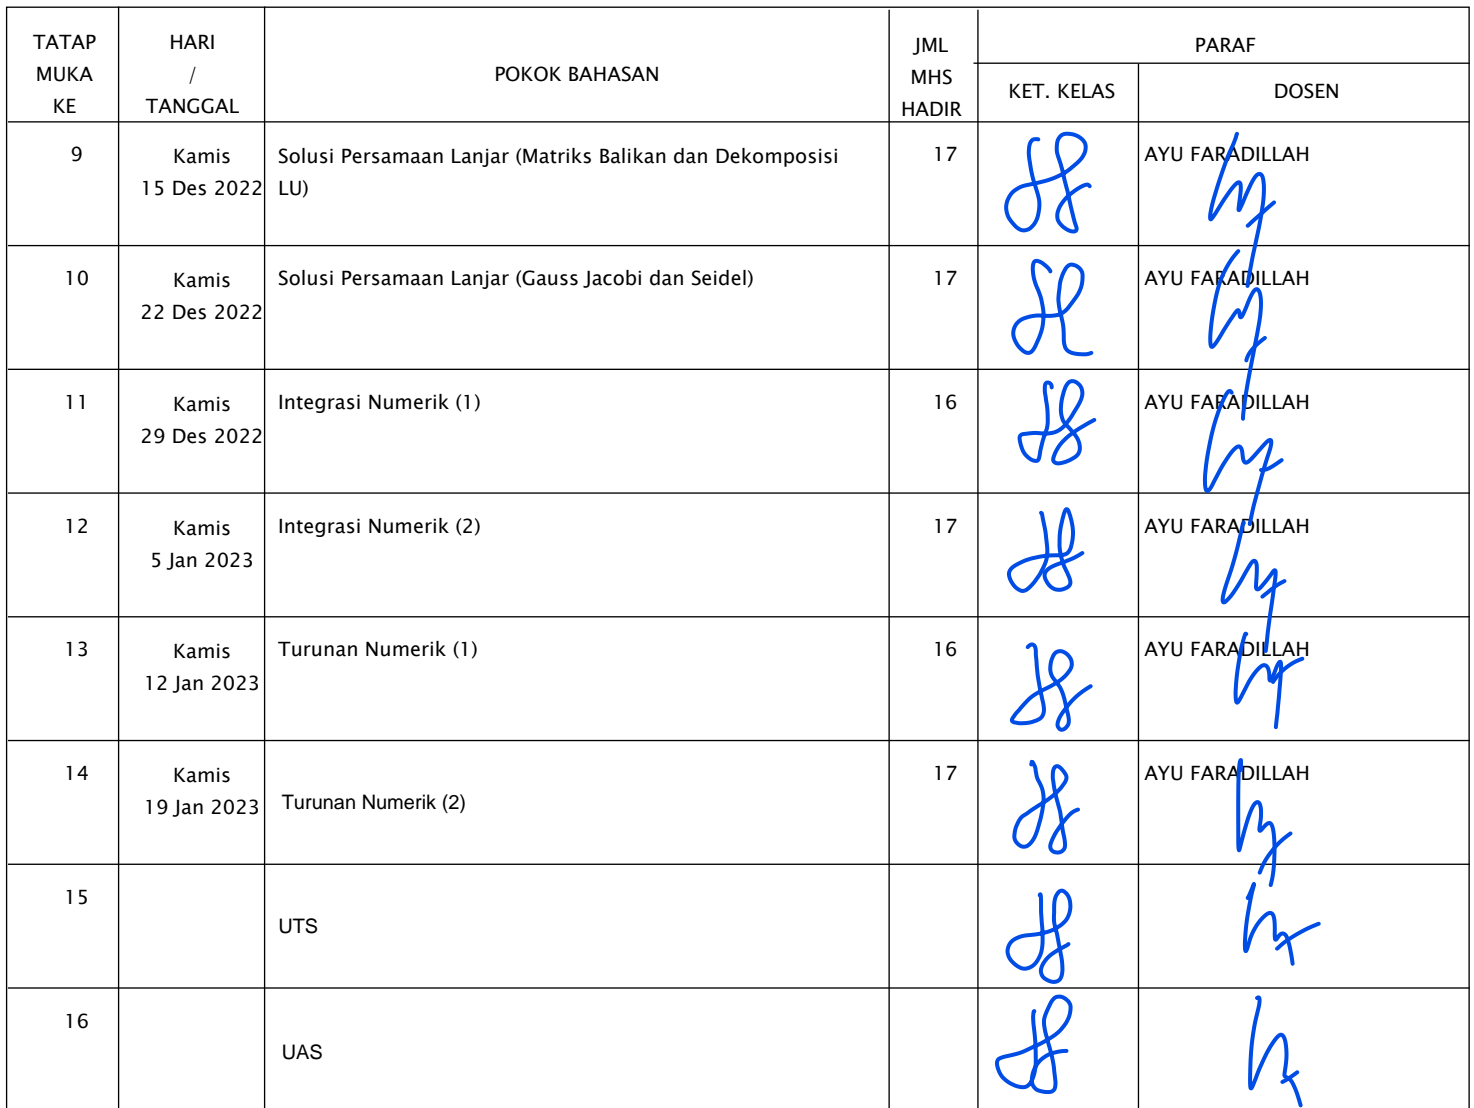 TATAP
MUKA
KE
HARI
/
TANGGAL
POKOK BAHASAN
JML
MHS
HADIR
PARAF
KET. KELAS
DOSEN
9
Kamis
15 Des 2022
Solusi Persamaan Lanjar (Matriks Balikan dan Dekomposisi
LU)
17
AYU FARADILLAH
10
Kamis
22 Des 2022
Solusi Persamaan Lanjar (Gauss Jacobi dan Seidel)
17
AYU FARADILLAH
11
Kamis
29 Des 2022
Integrasi Numerik (1)
16
AYU FARADILLAH
12
Kamis
5 Jan 2023
Integrasi Numerik (2)
17
AYU FARADILLAH
13
Kamis
12 Jan 2023
Turunan Numerik (1)
16
AYU FARADILLAH
14
Kamis
19 Jan 2023
Turunan Numerik (2)
17
AYU FARADILLAH
15
UTS
16
UAS